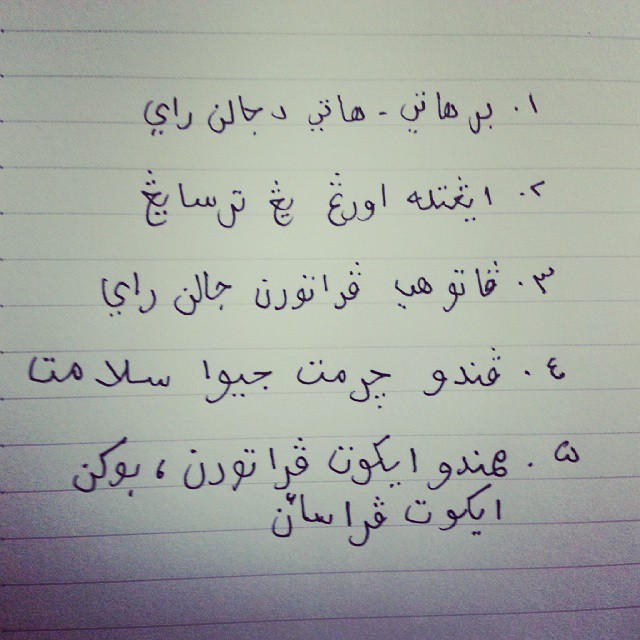 ١. برهاتي - هاتي دجالن راي
٢. ايڠتله اورڠ يڠ ترسايڠ
٣. ڤاتوهي ڤراتورن جالن راي
٤. ڤندو چرمت جيوا سلامت
٥. همندو ايكوت ڤراتورن، بوكن
ايكوت ڤراسأن